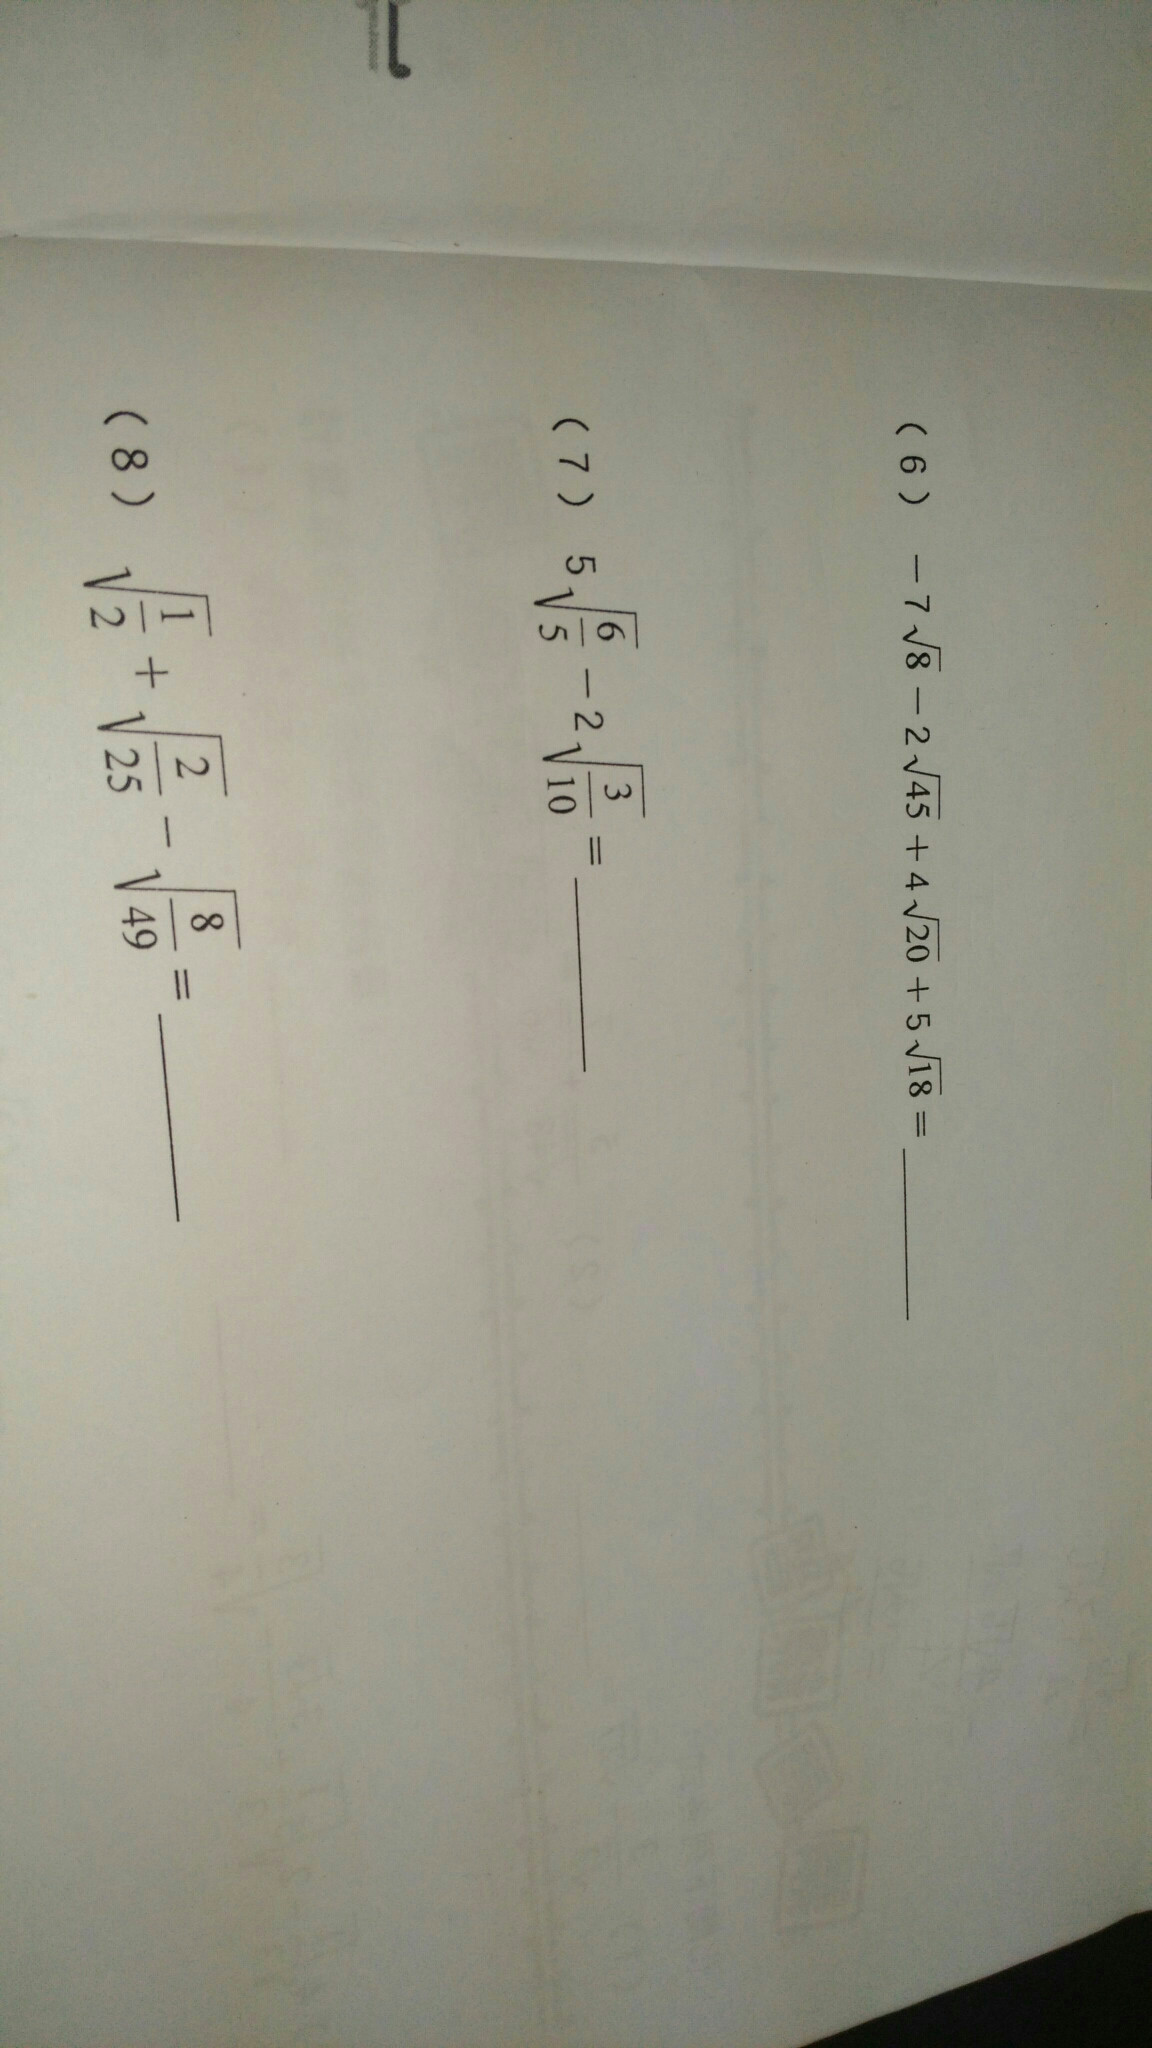 (6) -7√8-2√45+4√20+5√18=
(7) 5√(6/5)-2√(3/10)=
(8) √(1/2)+√(2/25)-√(8/49)=